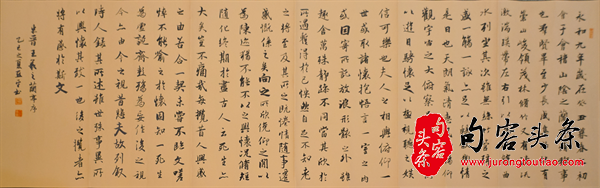 永和九年歲在癸丑暮春之初
會于會稽山陰之蘭亭
也群賢畢至少長咸集
崇山峻領茂林脩竹又有清流
激湍暎帶左右引以
水列坐其次雖無絲
盛一觴一詠亦足以
是日也天朗氣清惠
觀宇宙之大俯察
以遊目騁懷足以極視聽之娛
信可樂也夫人之相與俯仰一
世或取諸懷抱悟言一室之內
或因寄所託放浪形骸之外雖
趣舍萬殊靜躁不同當其欣於
所遇暫得於己快然自足不知老
之將至及其所之既倦情隨事遷
感慨係之矣向之所欣俛仰之間以
為陳迹猶不能不以之興懷況脩短
隨化終期於盡古人云死生亦
大矣豈不痛哉每攬昔人興感
之由若合一契未嘗不臨文嗟
悼不能喻之於懷固知一死生
為虛誕齊彭殤為妄作後之視
今亦由今之視昔悲夫故列敘
時人錄其所述雖世殊事異所
以興懷其致一也後之攬者亦
將有感於斯文
東晉王羲之蘭亭序
句容头条
句容头条
www.jurongtoutiao.com